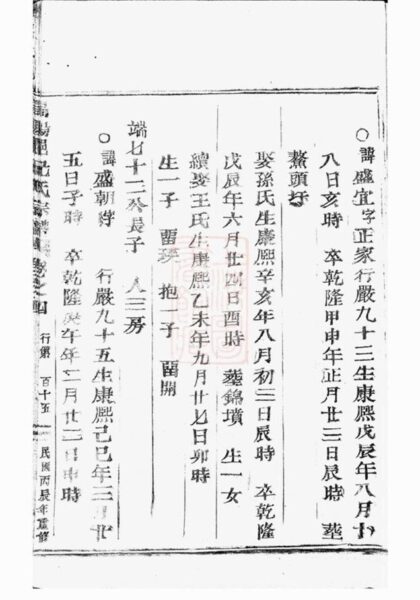 ○諱盛宜字正家行嚴九十三生康熙戊辰年八月十
八日亥時 卒乾隆甲申年正月廿三日辰時 塟
鰲頭圩
娶孫氏生康熙辛亥年八月初三日辰時 卒乾隆
戊辰年六月廿四日酉時 塟錦墳 生一女
續娶王氏生康熙乙未年九月廿七日卯時
生一子 抱一子 開
端七十二公長子 人三房
○諱盛朝 行嚴九十五生康熙己巳年三月廿
五日子時 卒乾隆庚午年二月廿三日申時
氏宗譜 四 行第 百十五 民國丙辰年重修